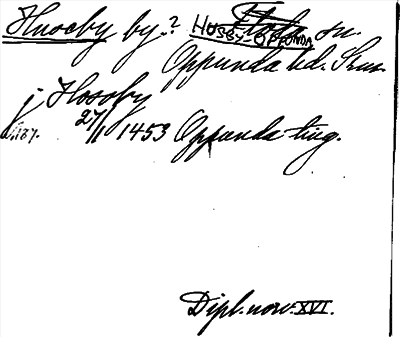 Husby by.? HUSBY-OPPUNDA sn.
Oppunda hd. Srm.
j Hosoby
27/1 1453 Oppunda ting.
Dipl. norv. XVI.